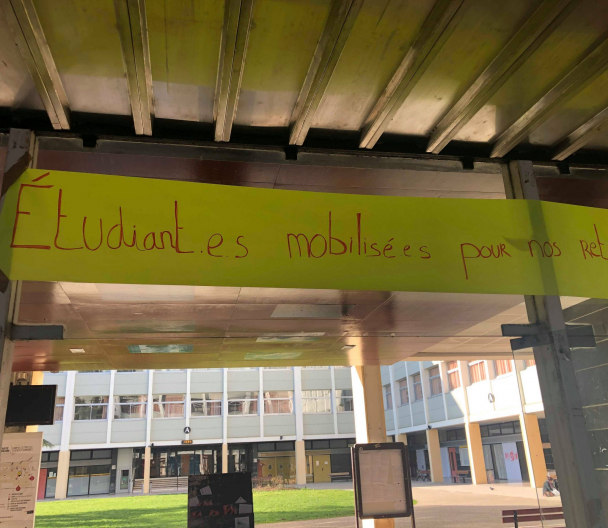 Étudiant.e.s mobilisé.e.s pour nos ret